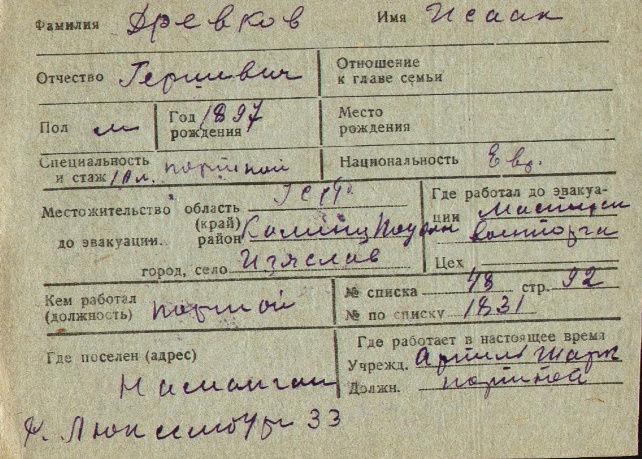 Фамилия Древков Имя Исаак
Отчество Гершевич Отношение к главе семьи
Пол м Год рождения 1897 Место рождения
Специальность и стаж 10 л. портной Национальность Евр.
Местожительство до эвакуации область (край)
район Каминец Подол
город, село Изяслав
Где работал до эвакуации Мастерск
военторга
Цех
Кем работал (должность) портной № списка 48 стр. 92
№ по списку 1831
Где поселен (адрес) Где работает в настоящее время
Учрежд. Артиль Шарк
Наманган Должн. портной
Люксембург 33